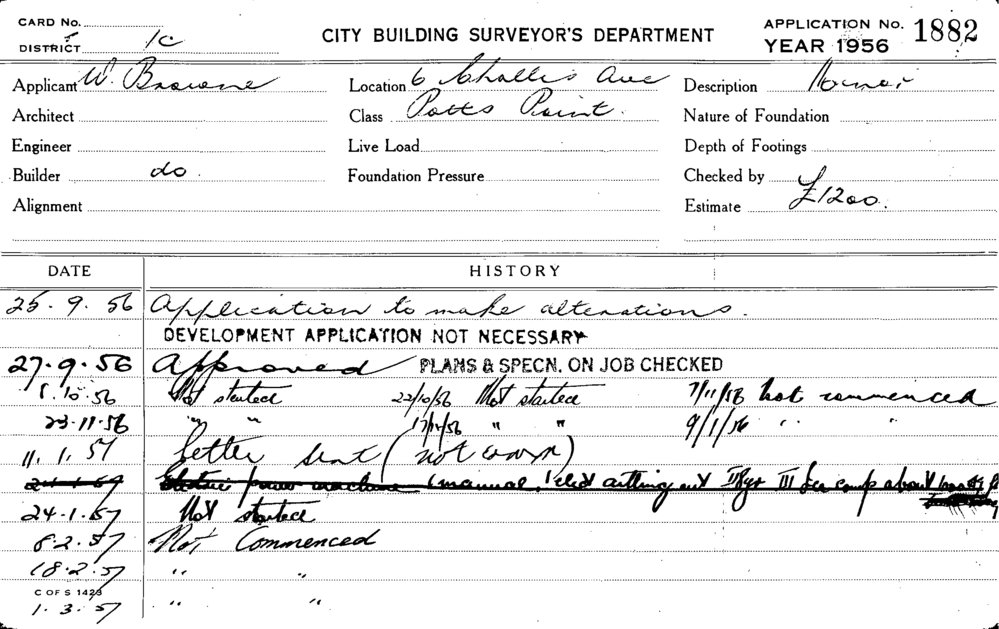 CARD No.
DISTRICT 1C
CITY BUILDING SURVEYOR'S DEPARTMENT
APPLICATION No. 1882
YEAR 1956
Applicant W. Browne
Location 6 Challis Ave
Description Minor
Architect
Class Potts Point.
Nature of Foundation
Engineer
Live Load
Depth of Footings
Builder do
Foundation Pressure
Checked by
Alignment
Estimate £1200.
DATE HISTORY
25. 9. 56 Application to make alterations.
DEVELOPMENT APPLICATION NOT NECESSARY
27.9.56 Approved PLANS & SPECN. ON JOB CHECKED
10.56 Not started 22/10/56 Not started 7/11/56 Not commenced
23.11.56 " " 17/12/56 " " 9/1/56 " "
11. 1. 57 Letter sent (not
24.1.57 Not started
8.2.57 Not Commenced
18.2.57 " "
C OF S 1423
1. 3. 57 " "